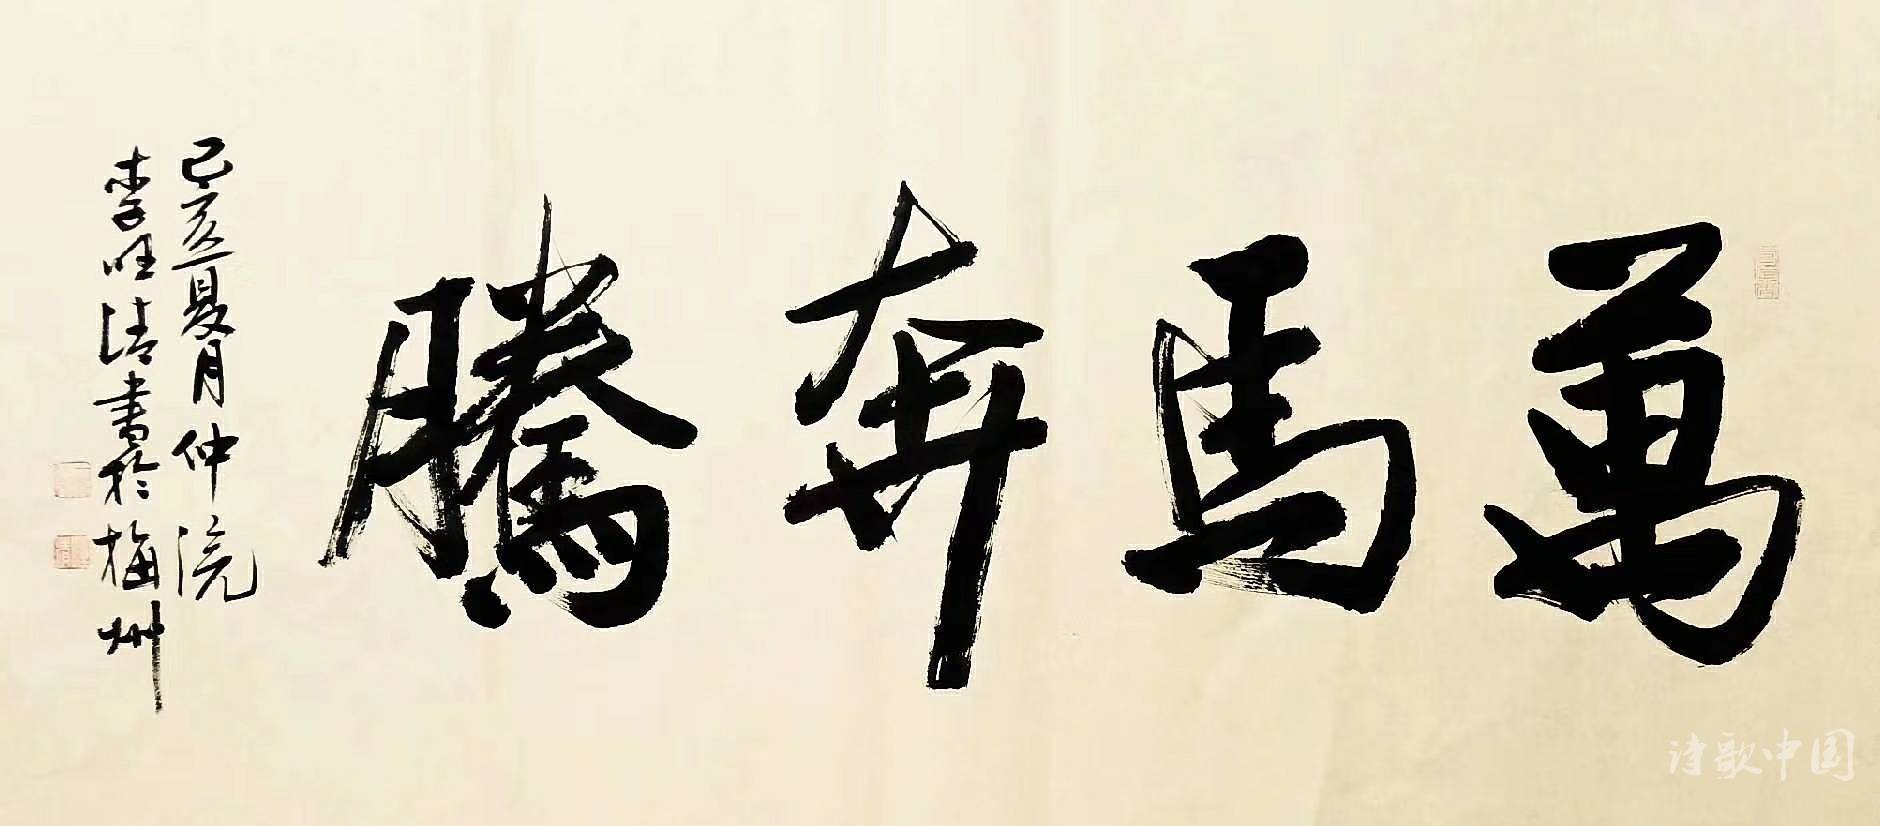 萬馬奔騰
己亥夏月仲浣
李旺清書於梅州
诗歌中国